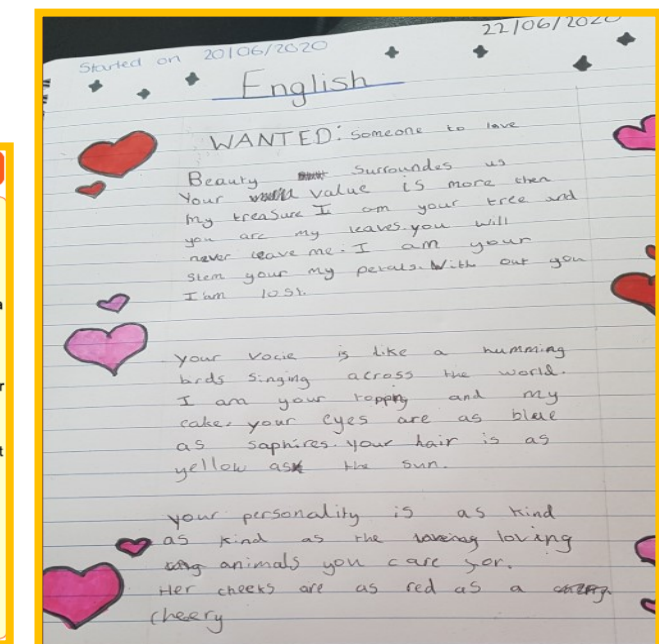 Started on 20/06/2020
22/06/2020
English
WANTED: Someone to love
Beauty surroundes us
Your value is more then
my treasure I am your tree and
you are my leaves. you will
never leave me. I am your
stem your my petals. With out you
I am lost.
your vocie is like a humming
birds singing across the world.
I am your topping and my
cake. your eyes are as blue
as saphires. your hair is as
yellow as the sun.
your personality is as kind
as kind as the loving
animals you care for.
Her cheeks are as red as a
cheery